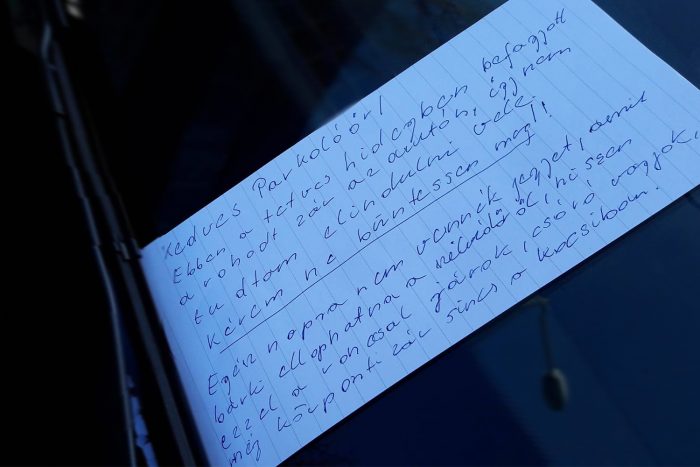 Kedves Parkolóőr!
Ebben a tetves hidegben befagyott
a rohadt zár az autón, így nem
tudtam elindulni vele.
Kérem ne büntessen meg!
Egész napra nem vennék jegyet, amit
bárki ellophatna a szélvédőről, hiszen
ezzel a ronccsal járok, csóró vagyok,
még központi zár sincs a kocsiban.